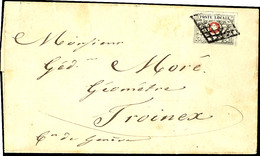 POSTE LOCALE
Monsieur
Géd.ⁿ Moré
Géomètre
Troinex
C.ⁿ de Genève